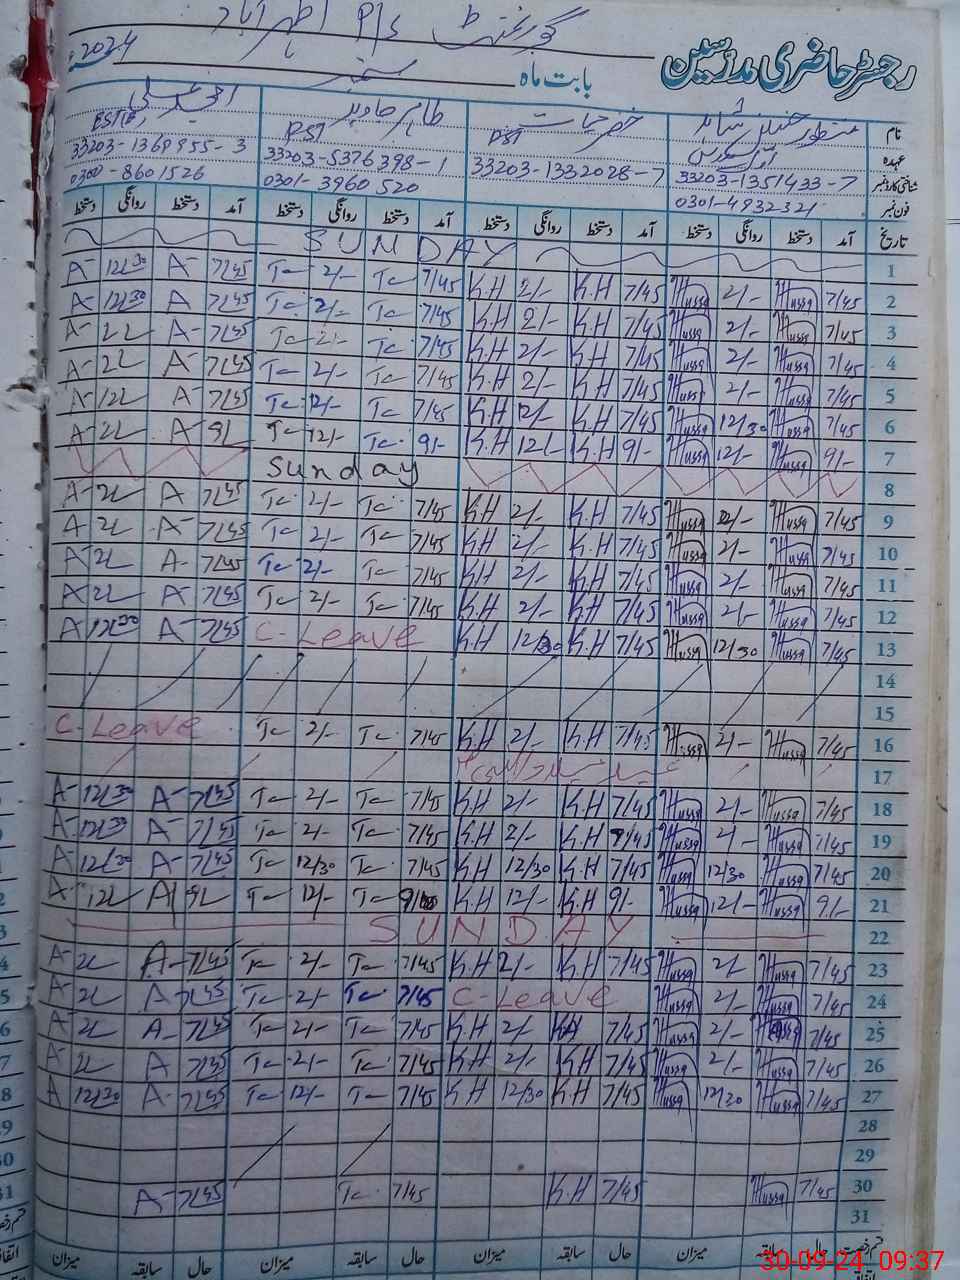 گورنمنٹ P/s اظہر آباد
رجسٹر حاضری مدرسین
بابت ماہ ستمبر 2024
نام منظور حسین شاہد خضر حیات طاہر جاوید
عہدہ PST PST
شناختی کارڈ نمبر 33203-1351433-7 33203-1332028-7 33203-5376398-1 33203-1369955-3
فون نمبر 0301-4932321 0301-3960520 0300-8601526
تاریخ آمد دستخط روانگی دستخط آمد دستخط روانگی دستخط آمد دستخط روانگی دستخط آمد دستخط روانگی دستخط
1 SUNDAY
2 7/45 Hussa 2/- Hussa 7/45 K.H 2/- K.H 7/45 Tc 2/- Tc 7/45 A 12/30 A
3 7/45 Hussa 2/- Hussa 7/45 K.H 2/- K.H 7/45 Tc 2/- Tc 7/45 A 12/30 A
4 7/45 Hussa 2/- Hussa 7/45 K.H 2/- K.H 7/45 Tc 2/- Tc 7/45 A 2/- A
5 7/45 Hussa 2/- Hussa 7/45 K.H 2/- K.H 7/45 Tc 2/- Tc 7/45 A 2/- A
6 7/45 Hussa 12/30 Hussa 7/45 K.H 12/- K.H 7/45 Tc 12/- Tc 7/45 A 12/- A
7 9/- Hussa 12/- Hussa 9/- K.H 12/- K.H 9/- Tc 12/- Tc 9/- A 2/- A
8 Sunday
9 7/45 Hussa 2/- Hussa 7/45 K.H 2/- K.H 7/45 Tc 2/- Tc 7/45 A 2/- A
10 7/45 Hussa 2/- Hussa 7/45 K.H 2/- K.H 7/45 Tc 2/- Tc 7/45 A 2/- A
11 7/45 Hussa 2/- Hussa 7/45 K.H 2/- K.H 7/45 Tc 2/- Tc 7/45 A 2/- A
12 7/45 Hussa 2/- Hussa 7/45 K.H 2/- K.H 7/45 Tc 2/- Tc 7/45 A 2/- A
13 7/45 Hussa 12/30 Hussa 7/45 K.H 12/30 K.H C-Leave 7/45 A 12/30 A
14
15
16 7/45 Hussa 2/- Hussa 7/45 K.H 2/- K.H 7/45 Tc 2/- Tc C-Leave
17 عید میلاد النبی
18 7/45 Hussa 2/- Hussa 7/45 K.H 2/- K.H 7/45 Tc 2/- Tc 7/45 A 12/30 A
19 7/45 Hussa 2/- Hussa 7/45 K.H 2/- K.H 7/45 Tc 2/- Tc 7/45 A 12/30 A
20 7/45 Hussa 12/30 Hussa 7/45 K.H 12/30 K.H 7/45 Tc 12/30 Tc 7/45 A 12/30 A
21 9/- Hussa 12/- Hussa 9/- K.H 12/- K.H Tc 12/- Tc 9/- A 12/- A
22 SUNDAY
23 7/45 Hussa 2/- Hussa 7/45 K.H 2/- K.H 7/45 Tc 2/- Tc 7/45 A 2/- A
24 7/45 Hussa 2/- Hussa C-Leave 7/45 Tc 2/- Tc 7/45 A 2/- A
25 7/45 Hussa 2/- Hussa 7/45 K.H 2/- K.H 7/45 Tc 2/- Tc 7/45 A 2/- A
26 7/45 Hussa 2/- Hussa 7/45 K.H 2/- K.H 7/45 Tc 2/- Tc 7/45 A 2/- A
27 7/45 Hussa 12/30 Hussa 7/45 K.H 12/30 K.H 7/45 Tc 12/- Tc 7/45 A 12/30 A
28
29
30 7/45 Hussa 7/45 K.H 7/45 Tc 7/45 A
31
قسم رخصت حال سابقہ میزان حال سابقہ میزان حال سابقہ میزان حال سابقہ میزان
30-09-24 09:37